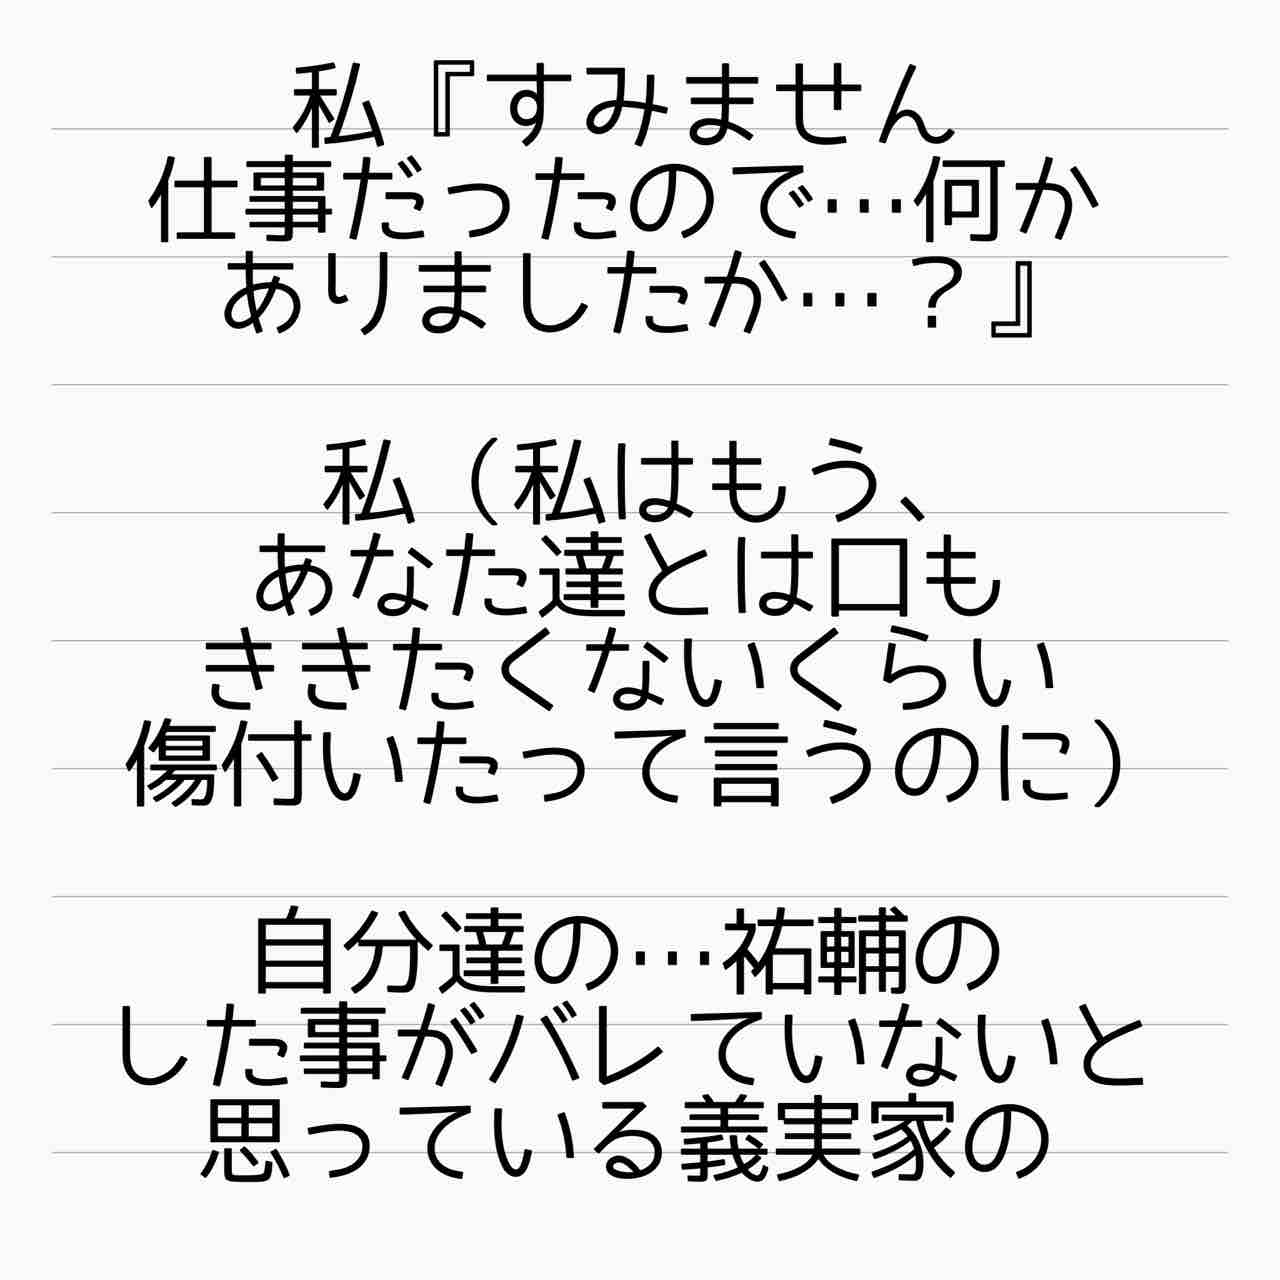 私『すみません
仕事だったので…何か
ありましたか…？』
私（私はもう、
あなた達とは口も
ききたくないくらい
傷付いたって言うのに）
自分達の…祐輔の
した事がバレていないと
思っている義実家の